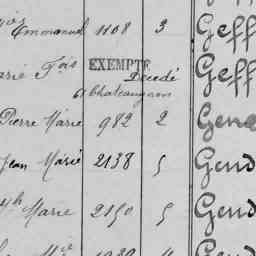 Emmanuel 1108 3 Geff
arie Fois EXEMPTÉ Décédé Geff
à Chateaugiron
Pierre Marie 982 2 Gend
Jean Marie 2138 5 Gend
Marie 2150 5 Gend